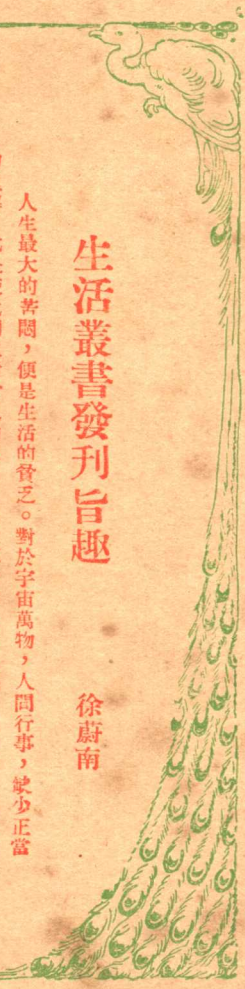 生活叢書發刊旨趣
徐蔚南
人生最大的苦悶，便是生活的貧乏。對於宇宙萬物，人間行事，缺少正當